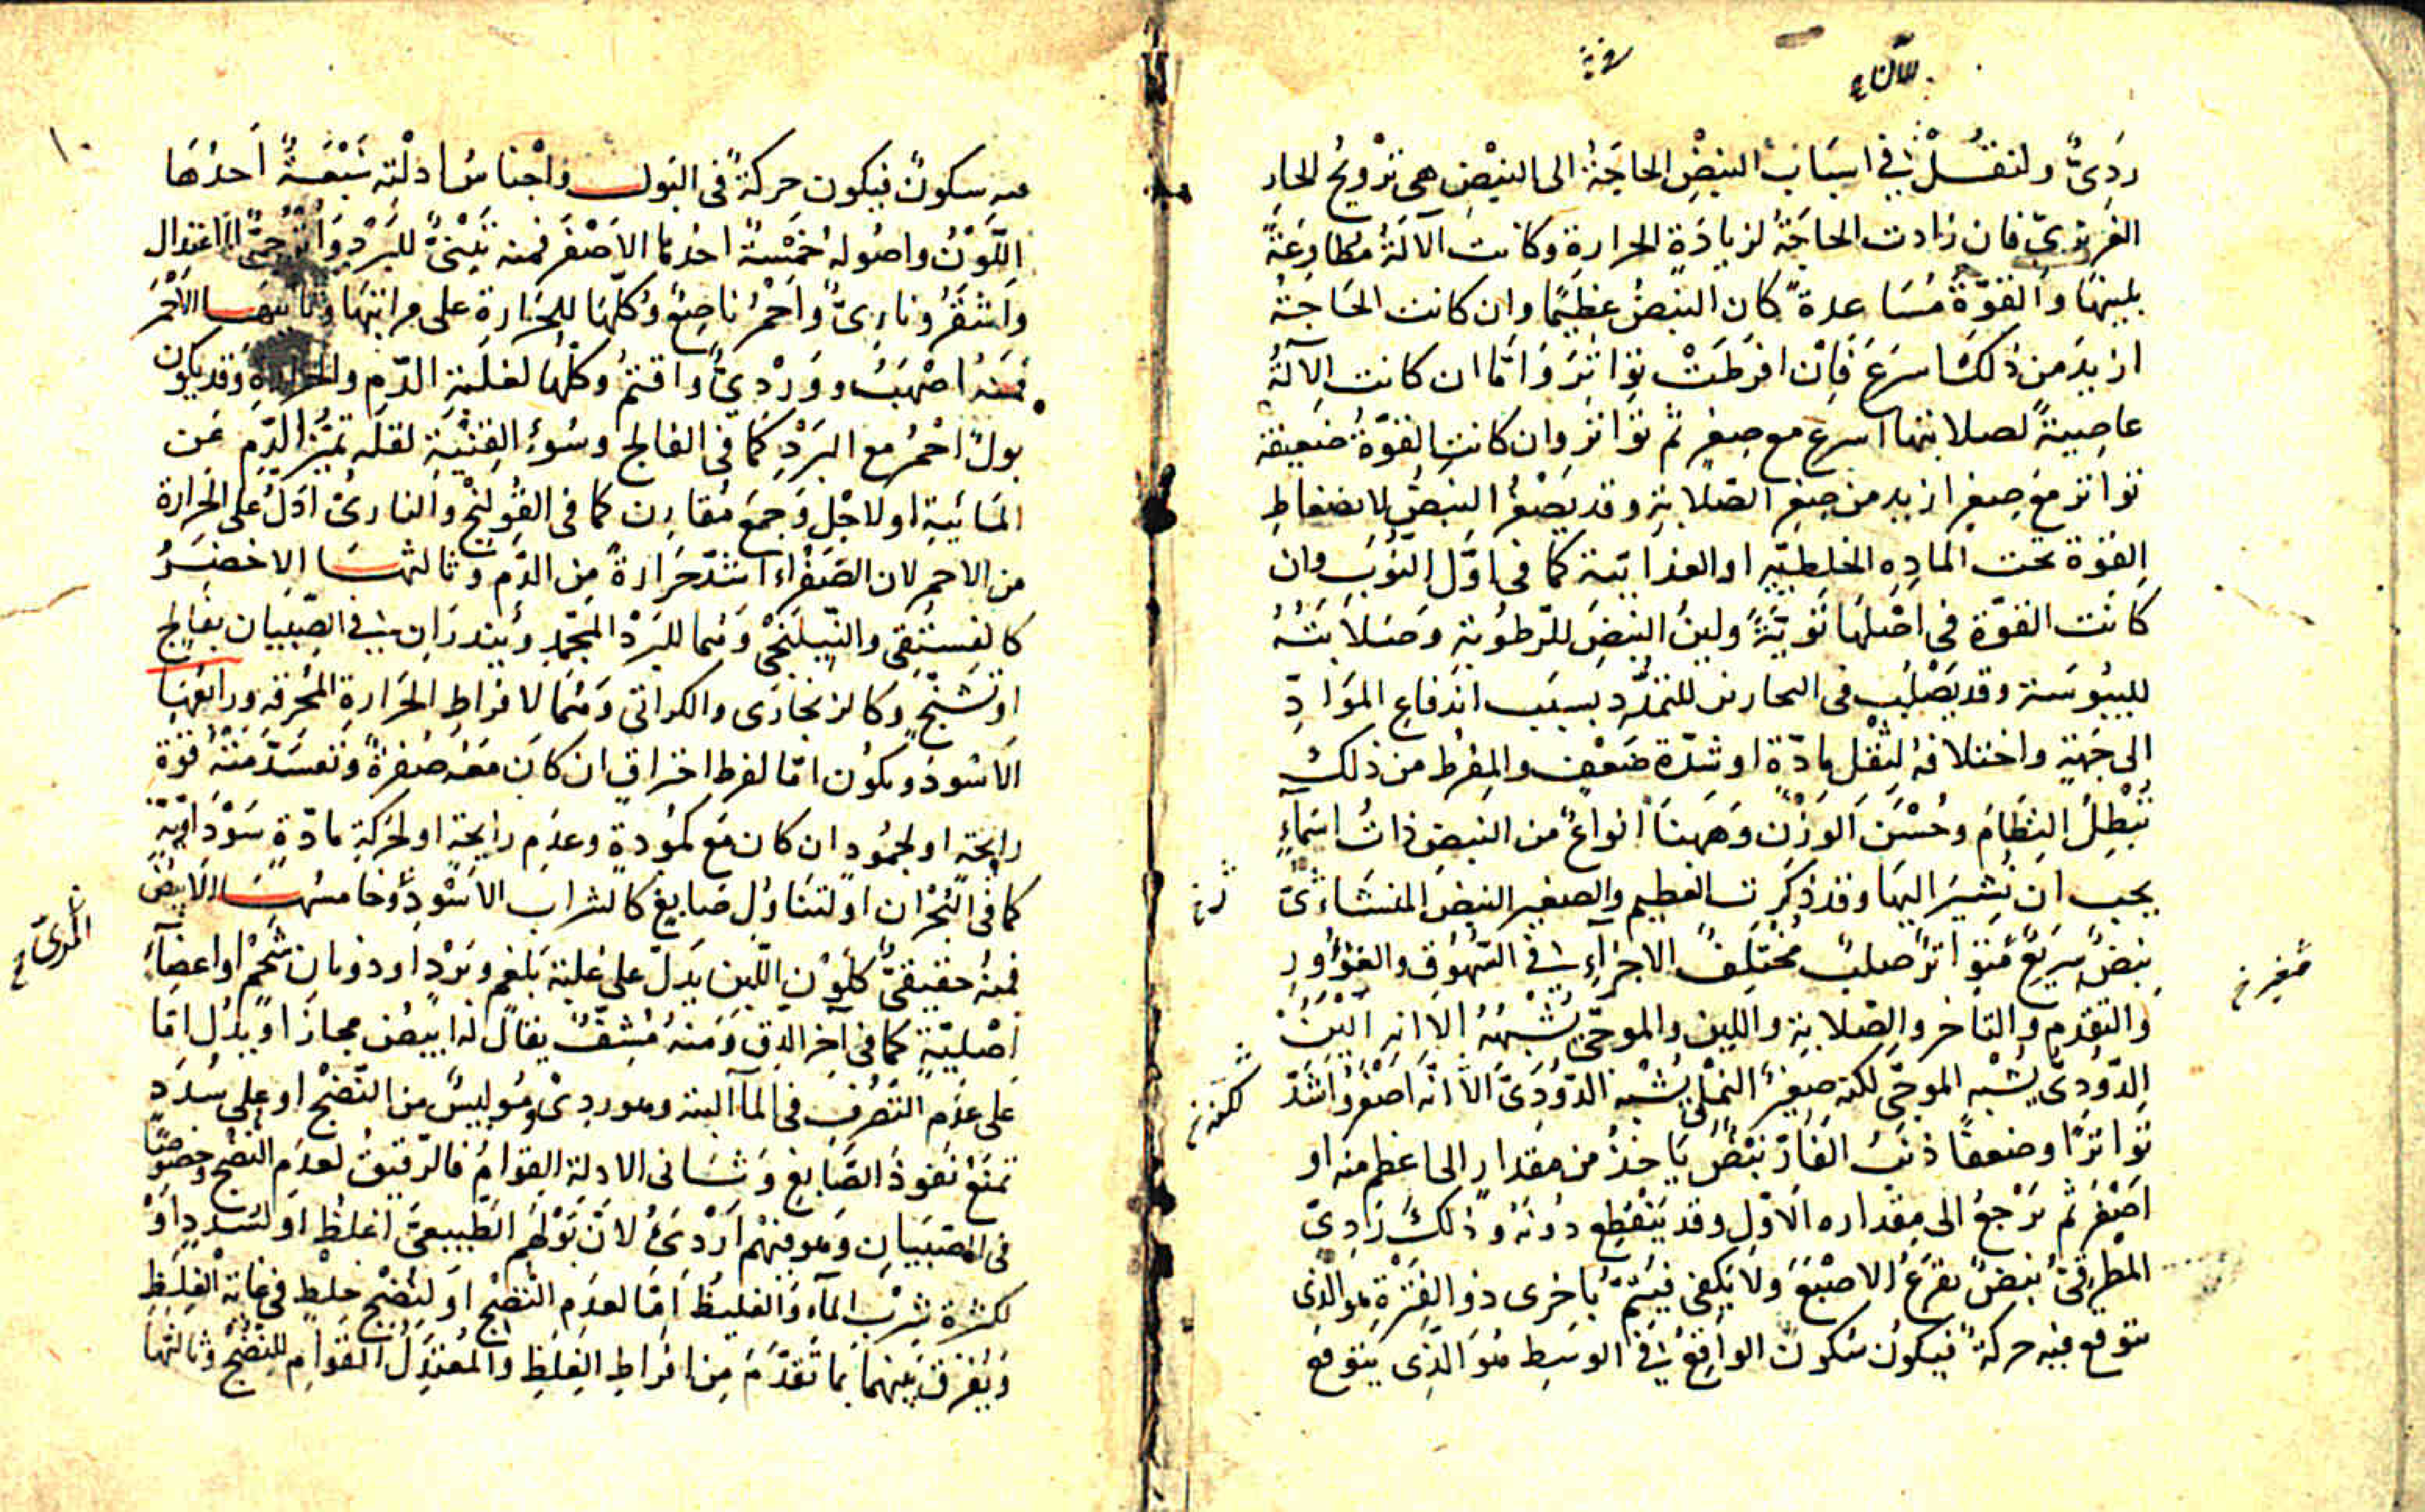 رَدِیٌّ ولنقُلْ فی اسبَاب النبضِ الحاجَةُ الی النبْضِ هی تَرْویحُ الحار
الغریزیّ فان زادت الحاجَةُ لزیادَةِ الحرارة وکانت الآلَةُ مُطاوِعَةً
بلینها والقوّةُ مُسَاعدةً کان النبضُ عظیمًا وان کانت الحَاجَةُ
ازیدَ من ذلک اسرَعَ فَاِن افرَطَتْ تواتَرَ وَامّا ان کانت الآلَةُ
عاصِیةً لصلابتها اسرع مع صِغرٍ ثم تواتر وان کانت القوّةُ ضعیفة
تواتر مع صِغرٍ ازید من صِغرِ الصّلابَةِ وقد یَصْغُرُ النبضُ لانضغاطِ
القوّة تحت المادِه الخلطیّهِ او الغذائیّة کما فی اوّل النُّوَبِ وان
کانَت القوّة فی اصْلهَا قویّةً ولینُ النبضِ للرّطوبَةِ وَصَلابَتُهُ
للیبُوسَة وقد یَصْلُب فی البحارین للتمدُّدِ بسبَب اندفاعِ المَوَادِّ
الی جَهةٍ واختلافهُ لِثقْلِ مادّة او شدّة ضَعْفٍ والمفْرط من ذلک
تُبْطِلُ النِظَامَ وحُسْنَ الوَزْنِ وَههنا انواعٌ من النبضِ ذاتُ اسْمَآءٍ
یجب ان نُشیرَ الیهَا وقد ذکرنا العظیم والصغیر النبض المنشاریّ
نبضٌ سَریعٌ مُتَواترٌ صلبٌ مُختلِفُ الاجزآءِ فی الشّهُوق والغؤُورِ
والتقدم والتأخر والصّلابَةِ واللین والموجیّ یُشْبِهُهُ الّا انه الْیَنُ
الدّودیّ یشْبه الموجیّ لکنه صَغیرٌ النمْلیّ یُشْبِه الدّودیّ الّا انّه اصْغرُ وَاشَدّ
تواتُرًا وضعفًا ذنَبُ الفَأرِ نبْضٌ یَاخذُ من مقدارٍ الی اعظم منه او
اصْغَرَ ثم یَرْجعُ الی مقداره الاوّلِ وقد یَنقطِع دُونَهُ وذلک رَدِیّ
المطرقیّ نبضٌ یقرَعُ الاصْبَعَ ولا یَکفی فیُتمّ باخری ذو الفتْرَةِ هو الذی
یتوقع فیه حرکةٌ فیکون سُکونٌ الواقع فی الوسطِ هُوَ الّذی یتوقع
صغیر خ
لکنه خ
فیه سکونٌ فیکون حرکةٌ فی البَول وَاجْناسُ ادلّتِه سَبْعَةٌ اَحدُهَا
اللَّوْنُ واصُوله خمْسَةٌ احدها الاصْفَرُ فمنه تبْنیٌّ للبَرْدِ وَاُتْرجیٌّ للاعتدال
وَاشقَرُ وناریٌّ وَاحْمرُ ناصِعٌ وکلّهَا للحَرارة علی مراتبها وثانیهَا الاحْمَر
فمنه اصْهَبُ ووَرْدیٌّ واقتمُ وکلّهَا لغلبَة الدّم والحرارةِ وقد یکون
بولٌ احْمرُ مع البَرْدِ کمَا فی الفالج وسُوءِ القنْیَةِ لقلّه تمیّز الدّم عَن
المائیّةِ او لاجْلِ وَجعٍ مُقارِن کما فی القُولَنْج والناریُّ ادَلّ علی الحَرارة
من الاحمر لان الصّفْراءَ اشدّ حَرارةً مِن الدّم وثالثها الاخضَرُ
کالفستقی والنّیلنجی وهُما للبَرْد المجَمّدِ ویُنذرَانِ فی الصّبیَان بفالِج
او تشَنّج وکالزنجارَی والکراثی وهمَا لافراطِ الحَرارةِ المحْرقة ورابعُهَا
الاسْودُ ویکُون امّا لفرط احتراقٍ ان کانَ معَه صُفرةٌ وتقدّمَتْهُ قوّة
رایحَةٍ او لجمُودٍ ان کان مع کمُودةٍ وعدَم رایحَةٍ او لحرکةِ مادّةٍ سَوْدَاویّةٍ
کما فی البُحْرانِ او لتناوُل صَابِغ کالشراب الاسْوَدِ وخامسُهَا الابیَضُ
فمنهُ حقیقیٌّ کلَوْنِ اللّبن یَدلّ علی غلبَة بَلغم وبَرْدٍ او ذوبان شحْم او اعضآءٍ
اصْلیّةٍ کما فی آخر الدِّق وَمنهُ مُشِفٌّ یقالُ له ابیَضُ مجازًا ویدُل امّا
علی عدَم التصَرُفِ فی المآءِ البتة وهو ردیٌ وَمُولیسٌ من النضْج او علی سُدَدٍ
تمنَع نفوذ الصَّابِغِ وَثانی الادلة القِوَامُ فالرّقیقُ لعدم النضْج وخصُوصًا
فی الصّبیَانِ وهو فیهم اردَیُ لانّ بَوْلهُم الطّبیعیّ اغلظ او لسُددٍ اوْ
لکثرة شُرْبِ المآءِ والغلیظ امّا لعدَم النّضْج او لنضْج خلطٍ فی غایة الغِلَظِ
وَیُفرَق بینهمَا بما تقدّمَ مِن افراطِ الغِلَظِ والمُعتدِلُ القوَام للنُّضْج وثالثها